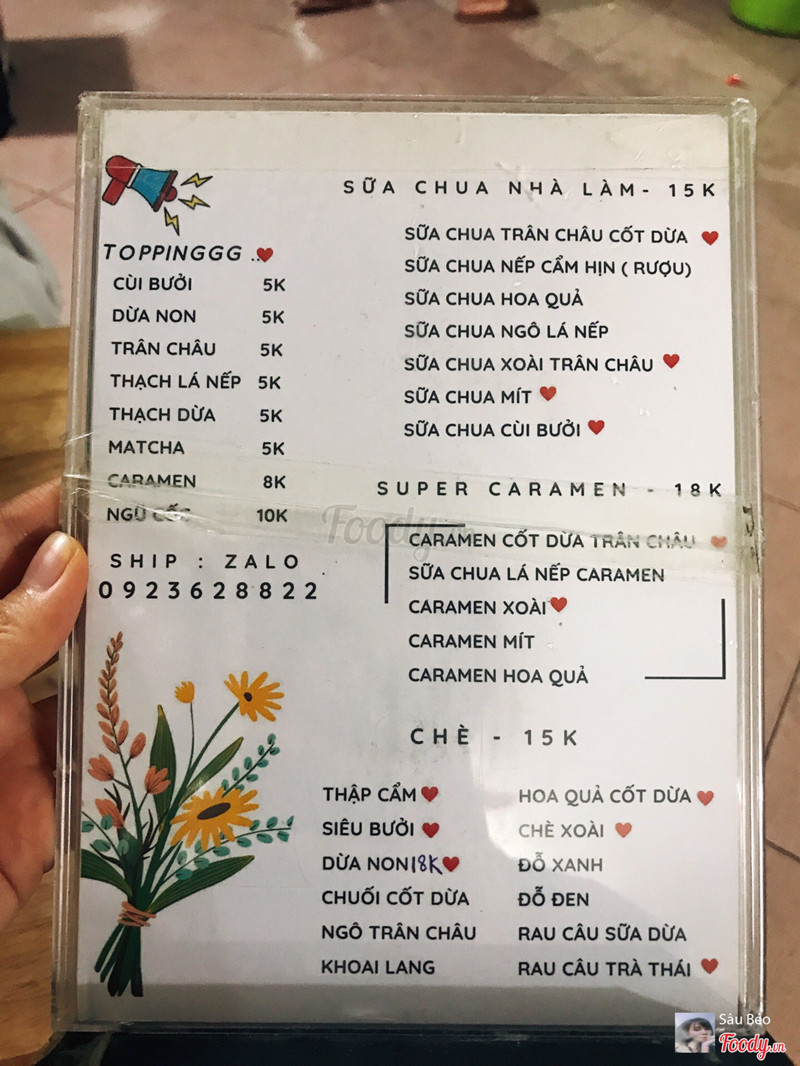 SỮA CHUA NHÀ LÀM- 15K
SỮA CHUA TRÂN CHÂU CỐT DỪA
SỮA CHUA NẾP CẨM HỊN ( RƯỢU)
SỮA CHUA HOA QUẢ
SỮA CHUA NGÔ LÁ NẾP
SỮA CHUA XOÀI TRÂN CHÂU
SỮA CHUA MÍT
SỮA CHUA CÙI BƯỞI
TOPPINGGG ..
CÙI BƯỞI 5K
DỪA NON 5K
TRÂN CHÂU 5K
THẠCH LÁ NẾP 5K
THẠCH DỪA 5K
MATCHA 5K
CARAMEN 8K
NGŨ CỐC 10K
SHIP : ZALO
0923628822
SUPER CARAMEN - 18K
CARAMEN CỐT DỪA TRÂN CHÂU
SỮA CHUA LÁ NẾP CARAMEN
CARAMEN XOÀI
CARAMEN MÍT
CARAMEN HOA QUẢ
CHÈ - 15K
THẬP CẨM
SIÊU BƯỞI
DỪA NON 18K
CHUỐI CỐT DỪA
NGÔ TRÂN CHÂU
KHOAI LANG
HOA QUẢ CỐT DỪA
CHÈ XOÀI
ĐỖ XANH
ĐỖ ĐEN
RAU CÂU SỮA DỪA
RAU CÂU TRÀ THÁI
Foody.vn
Sâu Béo
Foody.vn